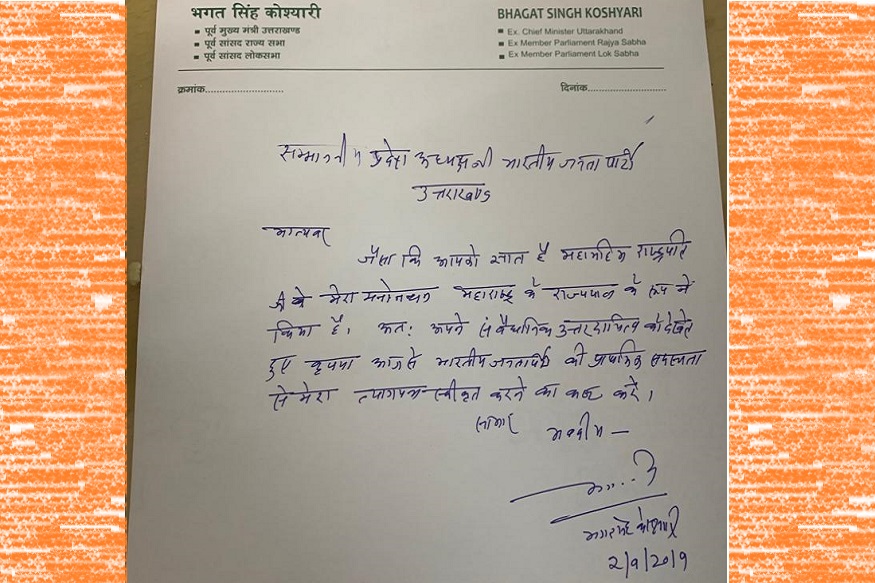 भगत सिंह कोश्यारी
▪ पूर्व मुख्य मंत्री उत्तराखण्ड
▪ पूर्व सांसद राज्य सभा
▪ पूर्व सांसद लोकसभा
BHAGAT SINGH KOSHYARI
▪ Ex. Chief Minister Uttarakhand
▪ Ex Member Parliament Rajya Sabha
▪ Ex Member Parliament Lok Sabha
क्रमांक..........................
दिनांक..........................
सम्माननीय प्रदेश अध्यक्ष जी भारतीय जनता पार्टी
उत्तराखण्ड
मान्यवर
जैसा कि आपको ज्ञात है महामहिम राष्ट्रपति
जी ने मेरा मनोनयन महाराष्ट्र के राज्यपाल के रूप में
किया है। अतः अपने संवैधानिक उत्तरदायित्व को देखते
हुए कृपया आज से भारतीय जनता पार्टी की प्राथमिक सदस्यता
से मेरा त्यागपत्र स्वीकृत करने का कष्ट करें।
साभार
भवदीय —
भगत सिंह कोश्यारी
2/9/2019